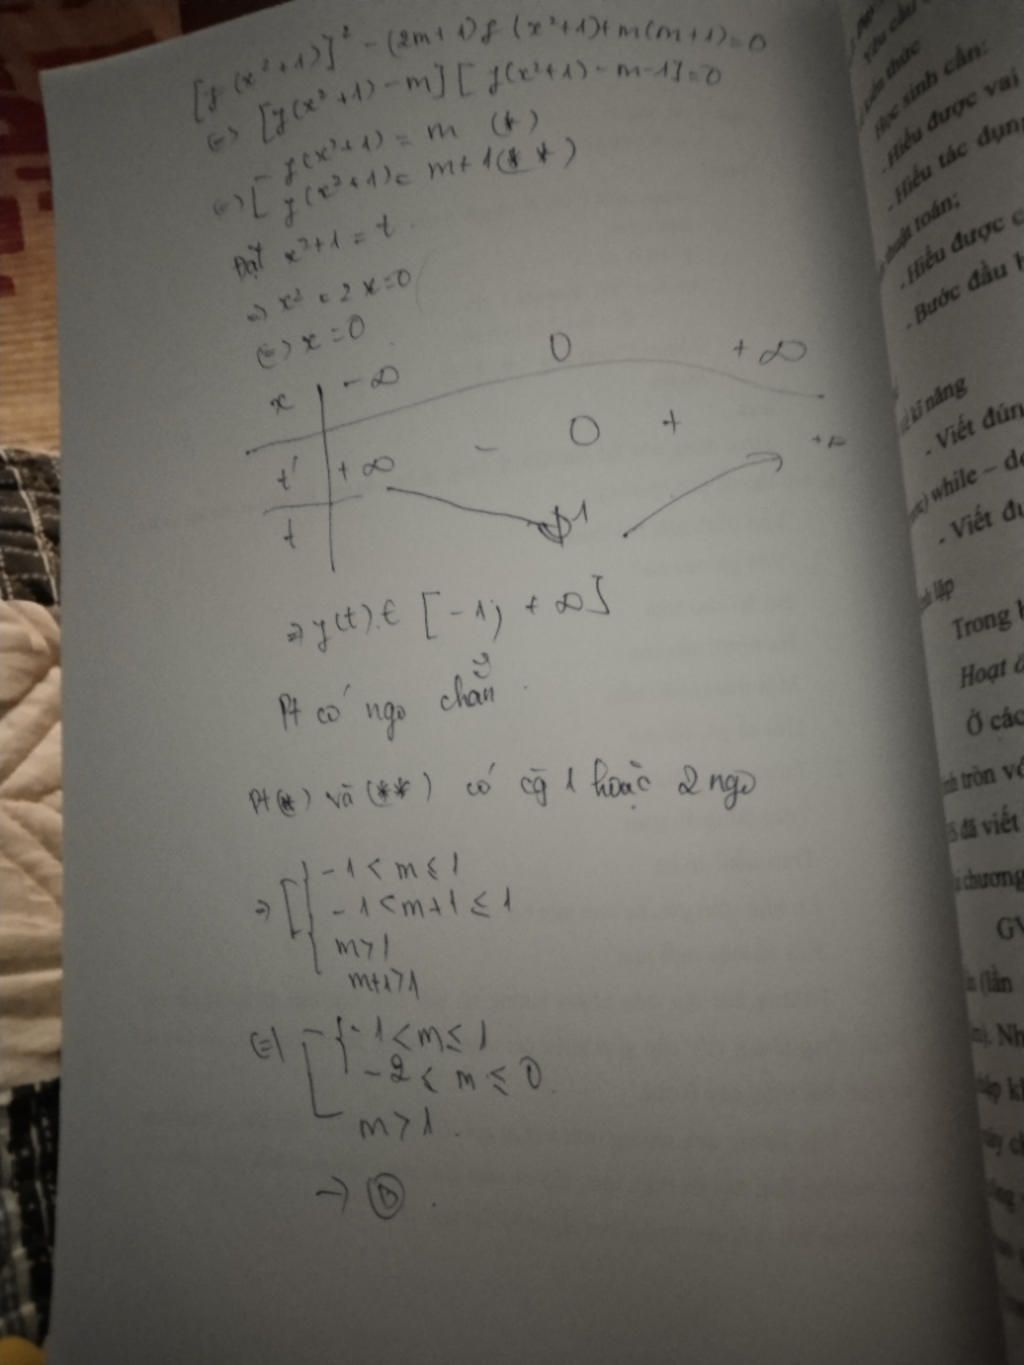 [f(x²+1)]² - (2m+1)f(x²+1)+m(m+1)=0
(=) [f(x²+1)-m] [f(x²+1)-m-1]=0
f(x²+1) = m (*)
(=) [ f(x²+1)= m+1(**)
Đặt x²+1 = t
=> x² = 2x=0
(=) x=0
x -∞ 0 +∞
t' - 0 +
t +∞ 1 +∞
=> f(t) ∈ [-1; +∞]
Pt có ngo chẵn
Pt(*) và (**) có cg 1 hoặc 2 ngo
=> [ { -1 < m ≤ 1
-1 < m+1 ≤ 1
m>1
m+1>1
(=) [ { -1 < m ≤ 1
-2 < m ≤ 0
m>1
→ (B).
kiến thức
Học sinh cần:
. Hiểu được vai
. Hiểu tác dụng
thuật toán;
. Hiểu được c
. Bước đầu b
kĩ năng
. Viết đún
while – do
. Viết đu
lặp
Trong
Hoạt
Ở các
tròn
đã viết
chương
GV
(lần